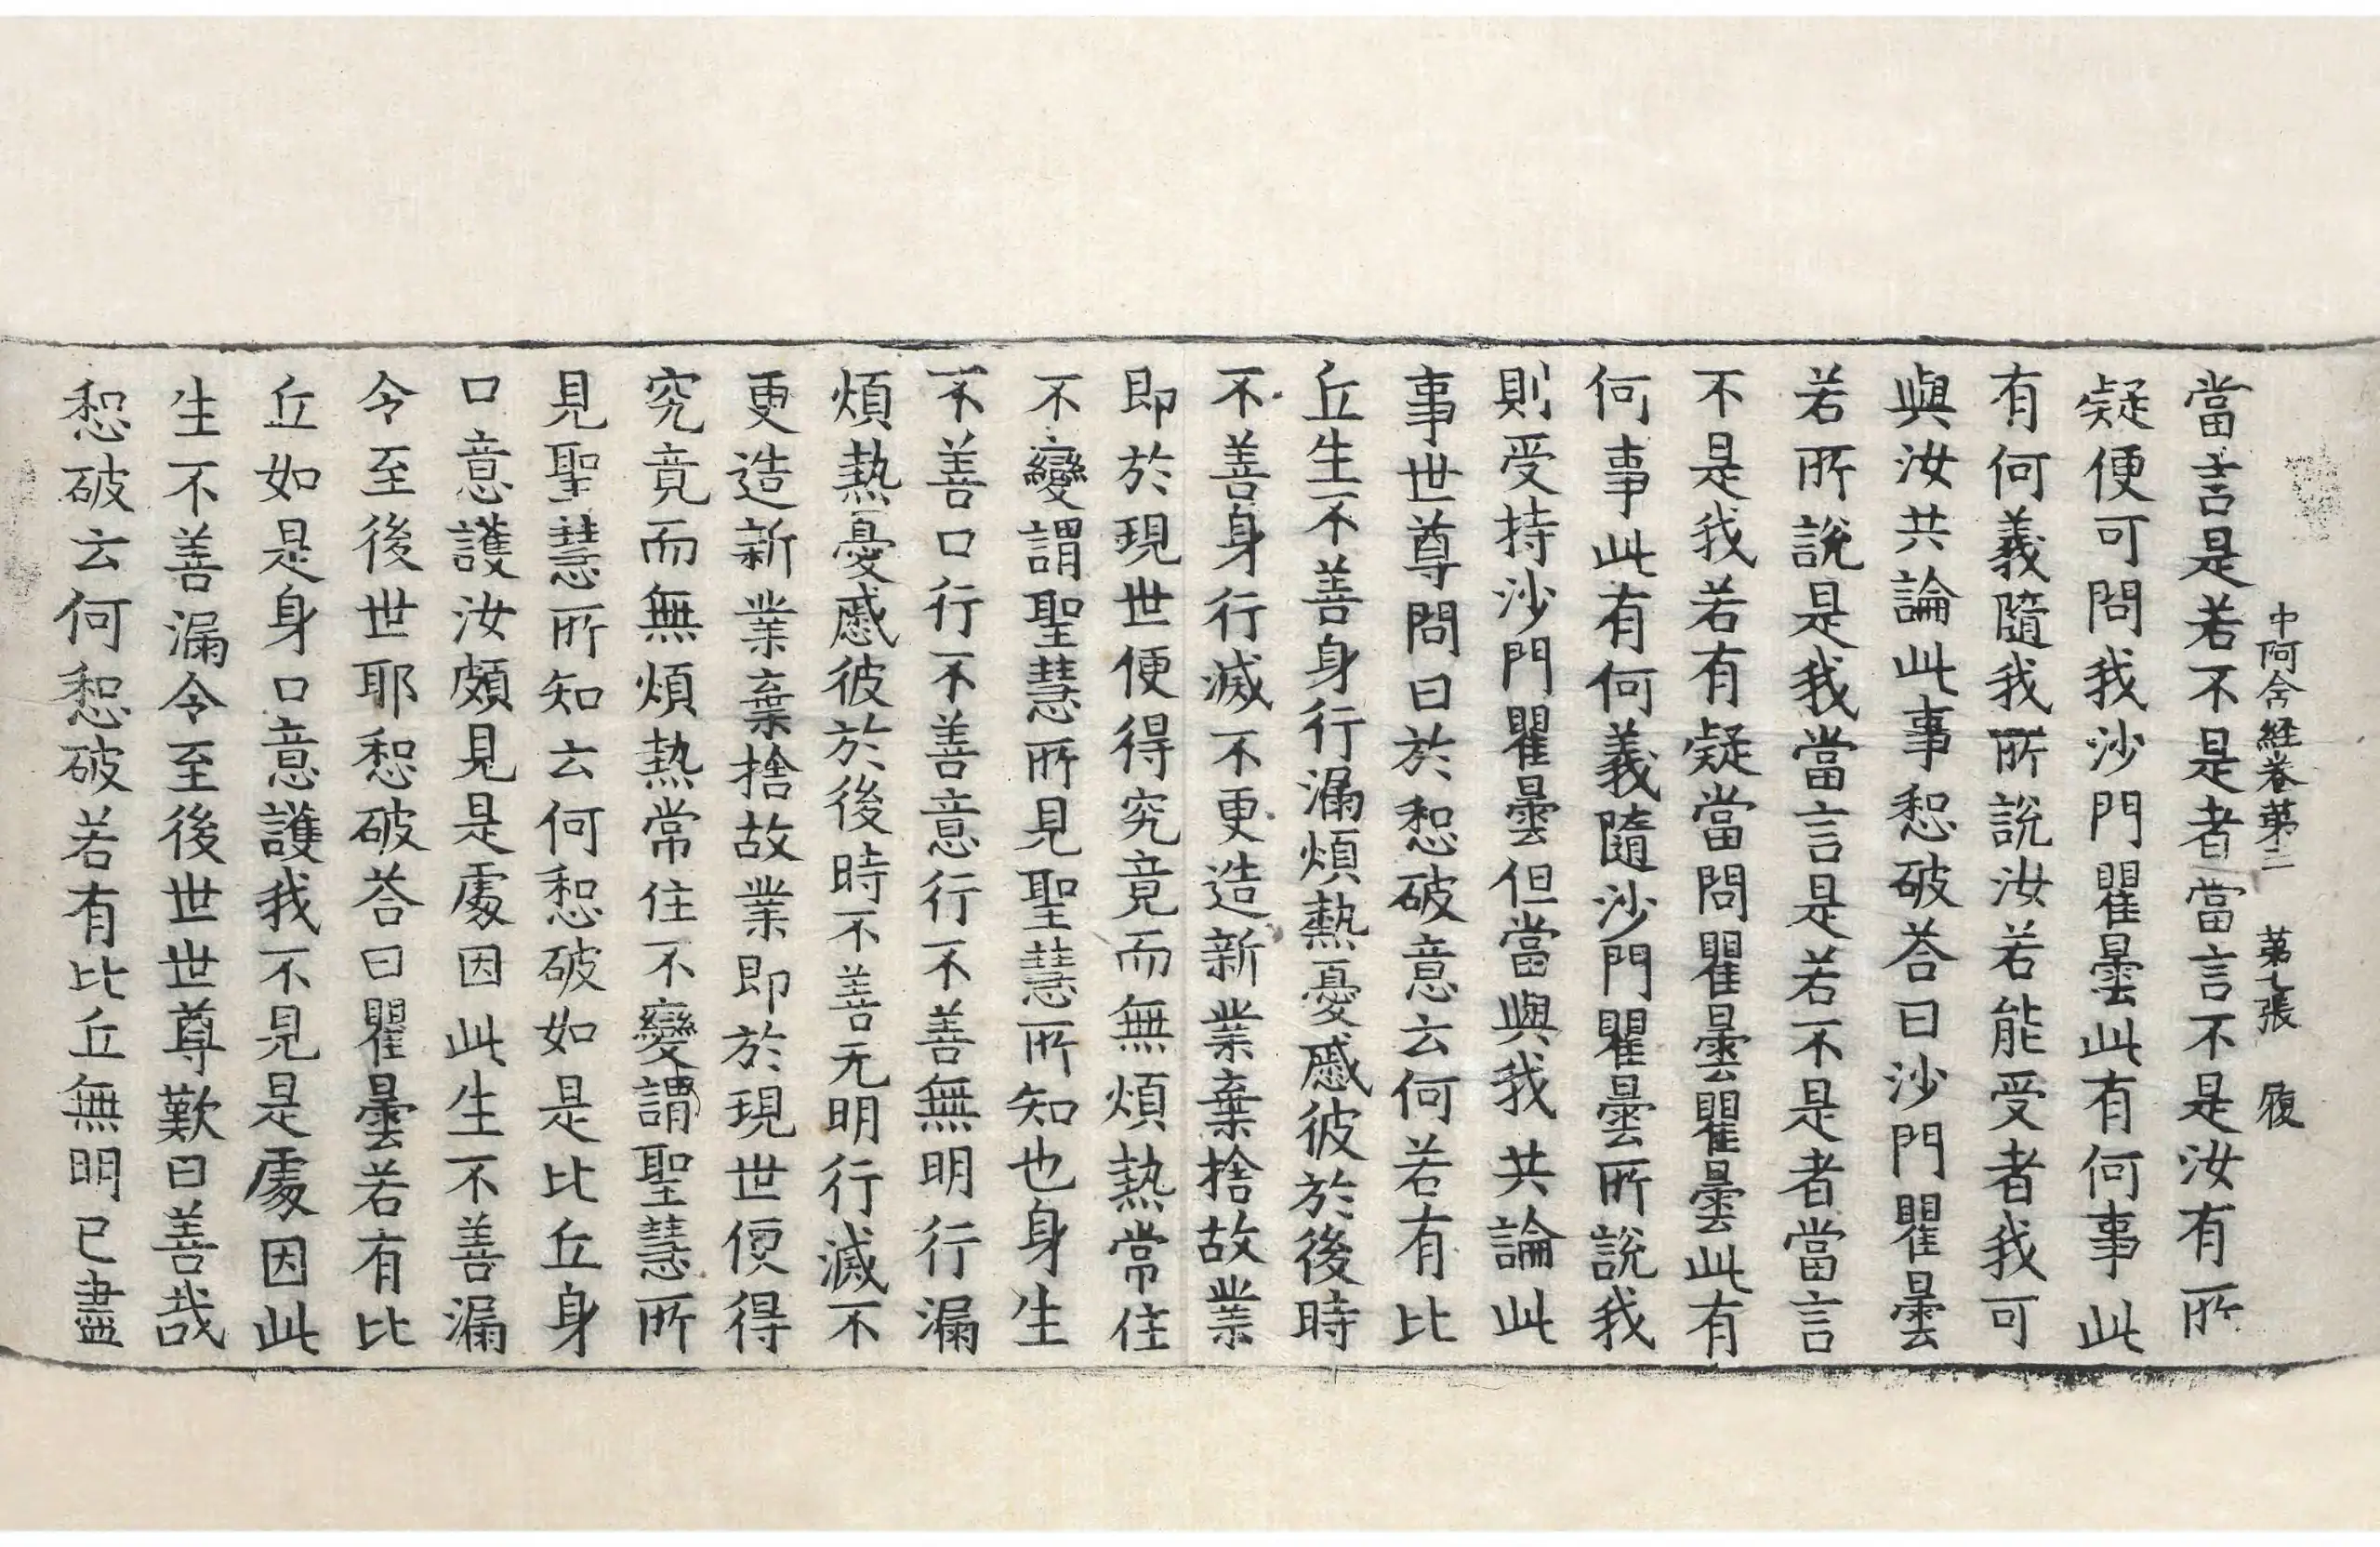 中阿含経卷第三　第七張　履
當言是若不是者當言不是汝有所
疑便可問我沙門瞿曇此有何事此
有何義隨我所說汝若能受者我可
與汝共論此事惒破荅曰沙門瞿曇
若所說是我當言是若不是者當言
不是我若有疑當問瞿曇瞿曇此有
何事此有何義隨沙門瞿曇所說我
則受持沙門瞿曇但當與我共論此
事世尊問曰於惒破意云何若有比
丘生不善身行漏煩熱憂慼彼於後時
不善身行滅不更造新業棄捨故業
即於現世便得究竟而無煩熱常住
不變謂聖慧所見聖慧所知也身生
不善口行不善意行不善無明行漏
煩熱憂慼彼於後時不善无明行滅不
更造新業棄捨故業即於現世便得
究竟而無煩熱常住不變謂聖慧所
見聖慧所知云何惒破如是比丘身
口意護汝頗見是處因此生不善漏
令至後世耶惒破荅曰瞿曇若有比
丘如是身口意護我不見是處因此
生不善漏令至後世世尊歎曰善哉
惒破云何惒破若有比丘無明已盡